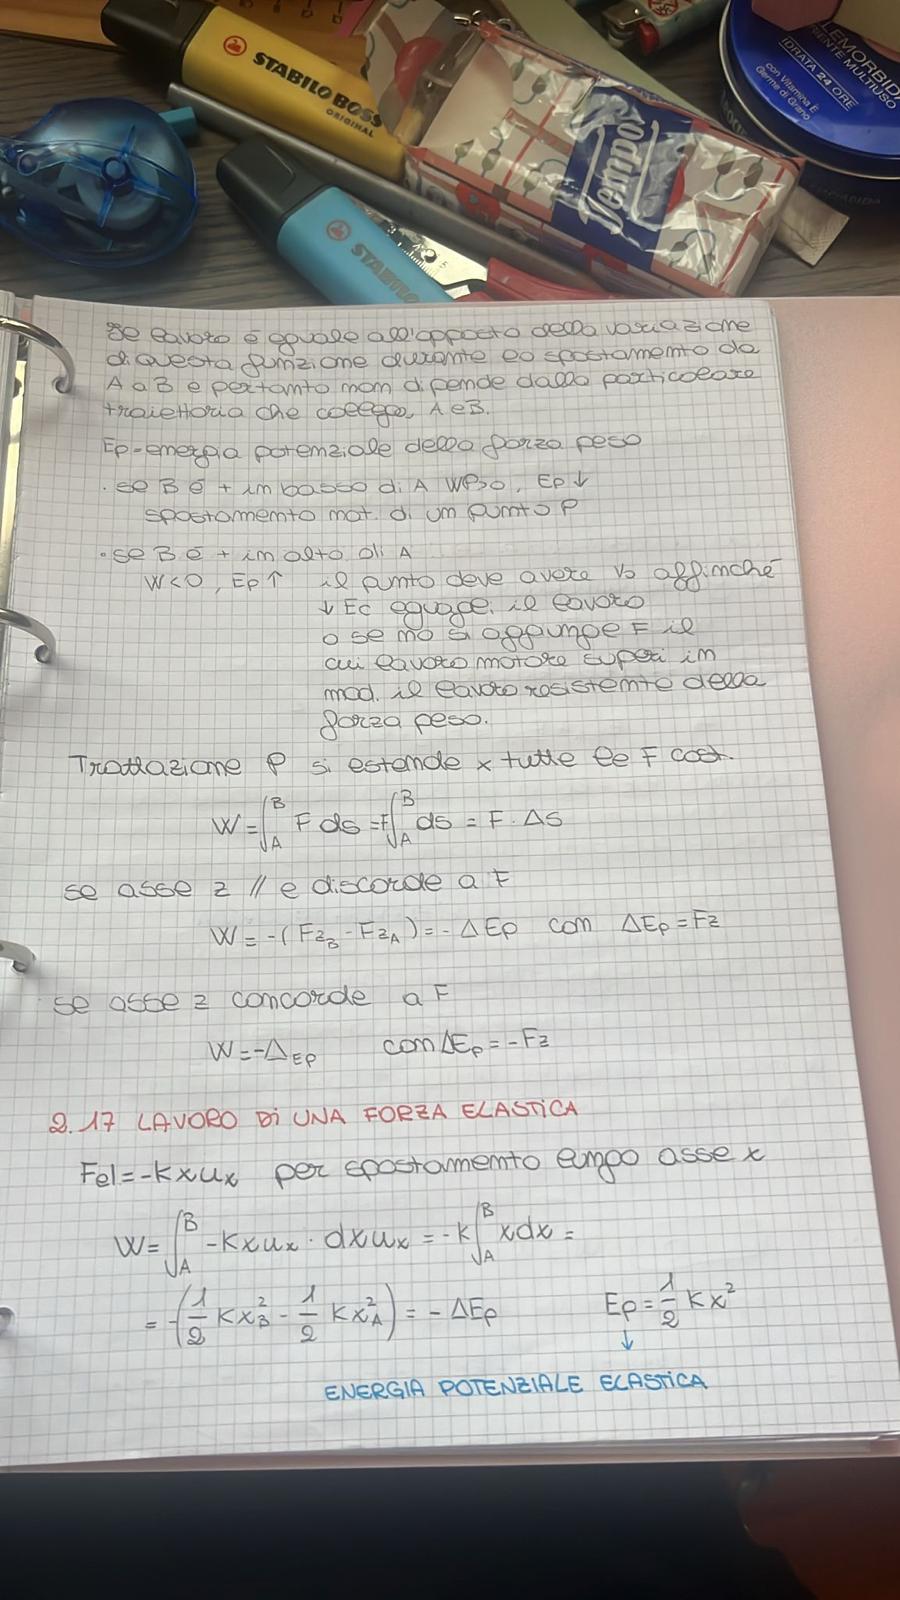 STABILO BOSS
ORIGINAL
STABILO
Tempo
IDRATA 24 ORE
con Vitamina E
Germe di Grano
Il lavoro è eguale all'opposto della variazione
di questa funzione durante lo spostamento da
A a B e pertanto non dipende dalla particolare
traiettoria che collega A e B.
Ep=energia potenziale della forza peso
· se B è + in basso di A WP>0, Ep↓
spostamento nat. di un punto P
· se B è + in alto di A
W<0, Ep↑ il punto deve avere V₀ affinché
↓ Ec eguagli il lavoro
o se no si aggiunge F il
cui lavoro motore superi in
mod. il lavoro resistente della
forza peso.
Trattazione P si estende x tutte le F cost.
W=∫_A^B F ds =F∫_A^B ds = F · Δs
se asse z // e discorde a F
W= -(Fz_B - Fz_A)= - ΔEp con ΔEp = Fz
se asse z concorde a F
W=-Δ_EP con ΔEp = -Fz
2.17 LAVORO DI UNA FORZA ELASTICA
Fel=-kxuₓ per spostamento lungo asse x
W=∫_A^B -Kxuₓ · dxuₓ = -k∫_A^B xdx =
= -(1/2 Kx²_B - 1/2 Kx²_A) = - ΔEp Ep = 1/2 Kx²
↓
ENERGIA POTENZIALE ELASTICA